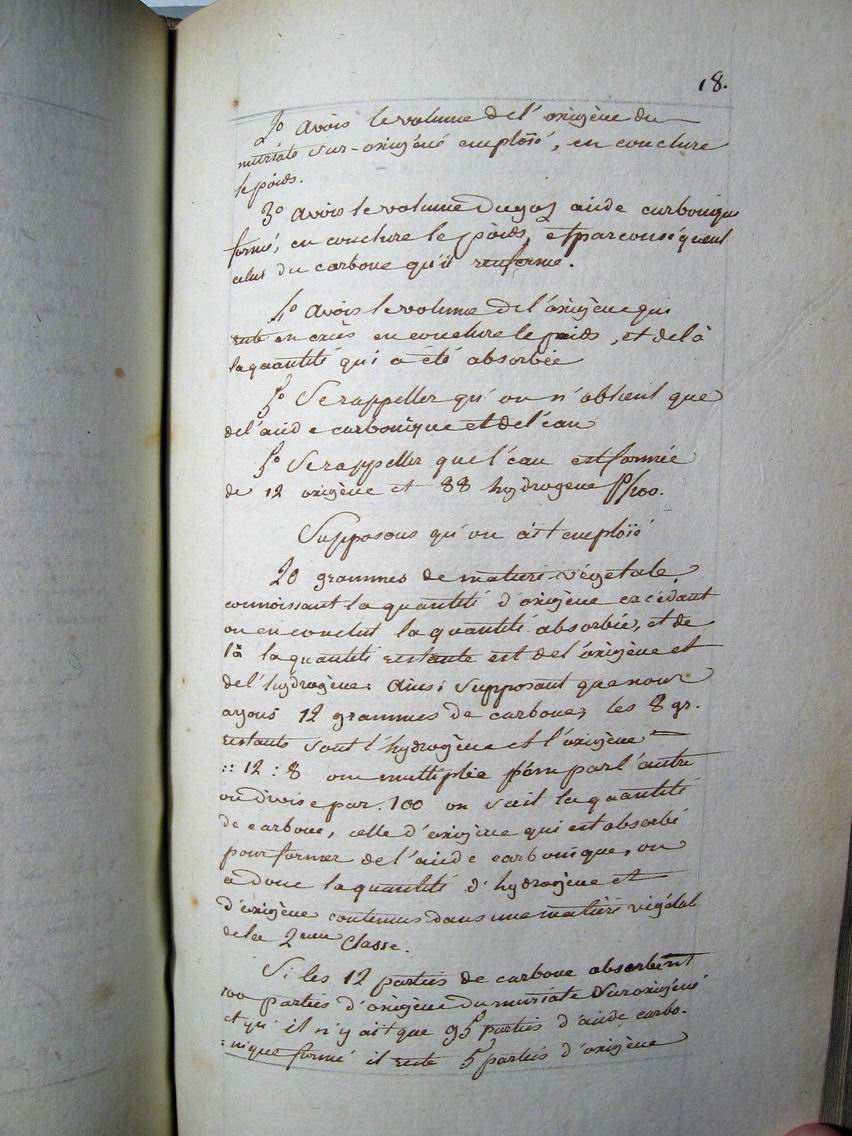 18.
2° avoir le volume del' oxigène du
muriate sur-oxigéné emploïé, en conclure
le poids.
3° avoir le volume Dugaz acide carbonique
formé, en conclure le poids, et parconséquent
celui du carbone qu'il renferme.
4° avoir le volume de l'oxigène qui
reste en excès en conclure le poids, et delà
la quantité qui a été absorbée
5° Se rappeller qu'on n'obtient que
del'acide carbonique et de l'eau
5° Se rappeller que l'eau est formée
de 12 oxigène et 88 hydrogene p/100.
Supposons qu'on ait emploïé
20 grammes de matiere végétale,
connoissant la quantité d'oxigène excédant
on en conclut la quantité absorbée, et de
là la quantité restante est de l'oxigène et
de l'hydrogène. Ainsi Supposant que nous
ayons 12 grammes de carbone, les 8 gr.
restants sont l'hydrogène et l'oxigène
:: 12 : 8 on multiplie l'un par l'autre
on Divise par 100 on sait la quantité
de carbone, celle d'oxigène qui est absorbé
pour former de l'acide carbonique, on
a donc la quantité d'hydrogène et
d'oxigène contenus dans une matière végétale
de la 2eme Classe.
Si les 12 parties de carbone absorbent
100 parties d'oxigène du muriate Suroxigené
et qu'il n'y ait que 95 parties d'acide carbo-
:nique formé il reste 5 parties d'oxigène